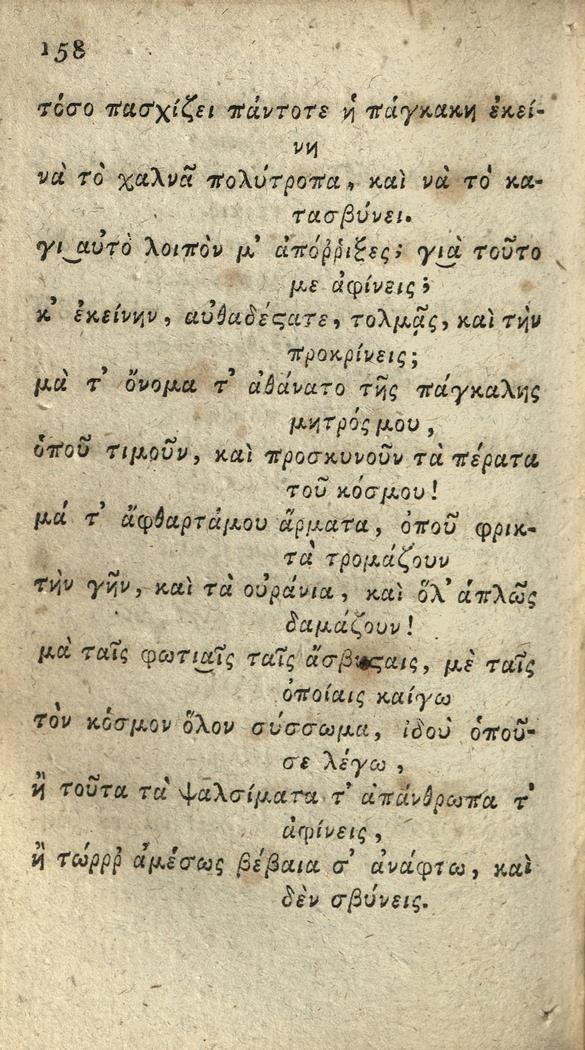 158
τόσο πασχίζει πάντοτε ἡ πάγκακη ἐκεί-
νη
νὰ τὸ χαλνᾶ πολύτροπα, καὶ νὰ τὸ κα-
τασβύνει.
γι αὐτὸ λοιπὸν μ' ἀπόῤῥιξες; γιὰ τοῦτο
με ἀφίνεις;
κ' ἐκείνην, αὐθαδέςατε, τολμᾷς, καὶ τὴν
προκρίνεις;
μὰ τ' ὄνομα τ' ἀθάνατο τῆς πάγκαλης
μητρός μου,
ὁποῦ τιμοῦν, καὶ προσκυνοῦν τὰ πέρατα
τοῦ κόσμου!
μά τ' ἄφθαρτάμου ἅρματα, ὁποῦ φρικ-
τὰ τρομάζουν
τὴν γῆν, καὶ τὰ οὐράνια, καὶ ὅλ' ἁπλῶς
δαμάζουν!
μὰ ταῖς φωτιαῖς ταῖς ἄσβυςαις, μὲ ταῖς
ὁποίαις καίγω
τὸν κόσμον ὅλον σύσσωμα, ἰδοὺ ὁποῦ-
σε λέγω,
ἢ τοῦτα τὰ ψαλσίματα τ' ἀπάνθρωπα τ'
ἀφίνεις,
ἢ τώρρρ ἀμέσως βέβαια σ' ἀνάφτω, καὶ
δὲν σβύνεις.